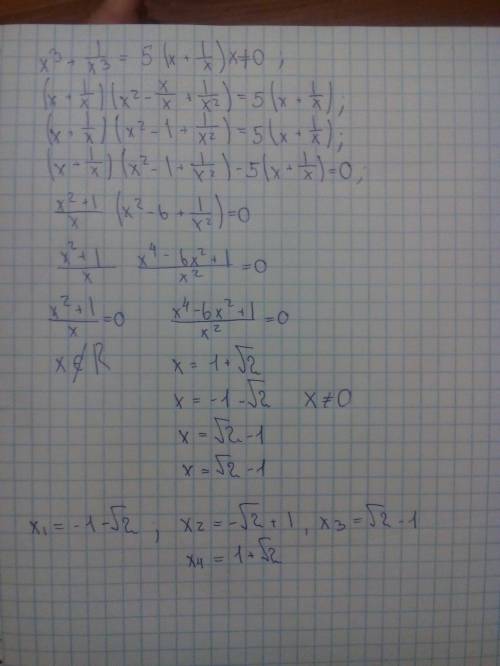 x³ + 1/x³ = 5 (x + 1/x) x≠0 ;
(x + 1/x) (x² - x/x + 1/x²) = 5 (x + 1/x) ;
(x + 1/x) (x² - 1 + 1/x²) = 5 (x + 1/x) ;
(x + 1/x) (x² - 1 + 1/x²) - 5 (x + 1/x) = 0 ;
(x² + 1)/x (x² - 6 + 1/x²) = 0
(x² + 1)/x (x⁴ - 6x² + 1)/x² = 0
(x² + 1)/x = 0 (x⁴ - 6x² + 1)/x² = 0
x ∉ R x = 1 + √2
x = -1 - √2 x ≠ 0
x = √2 - 1
x = √2 - 1
x₁ = -1 - √2 ; x₂ = -√2 + 1 , x₃ = √2 - 1
x₄ = 1 + √2